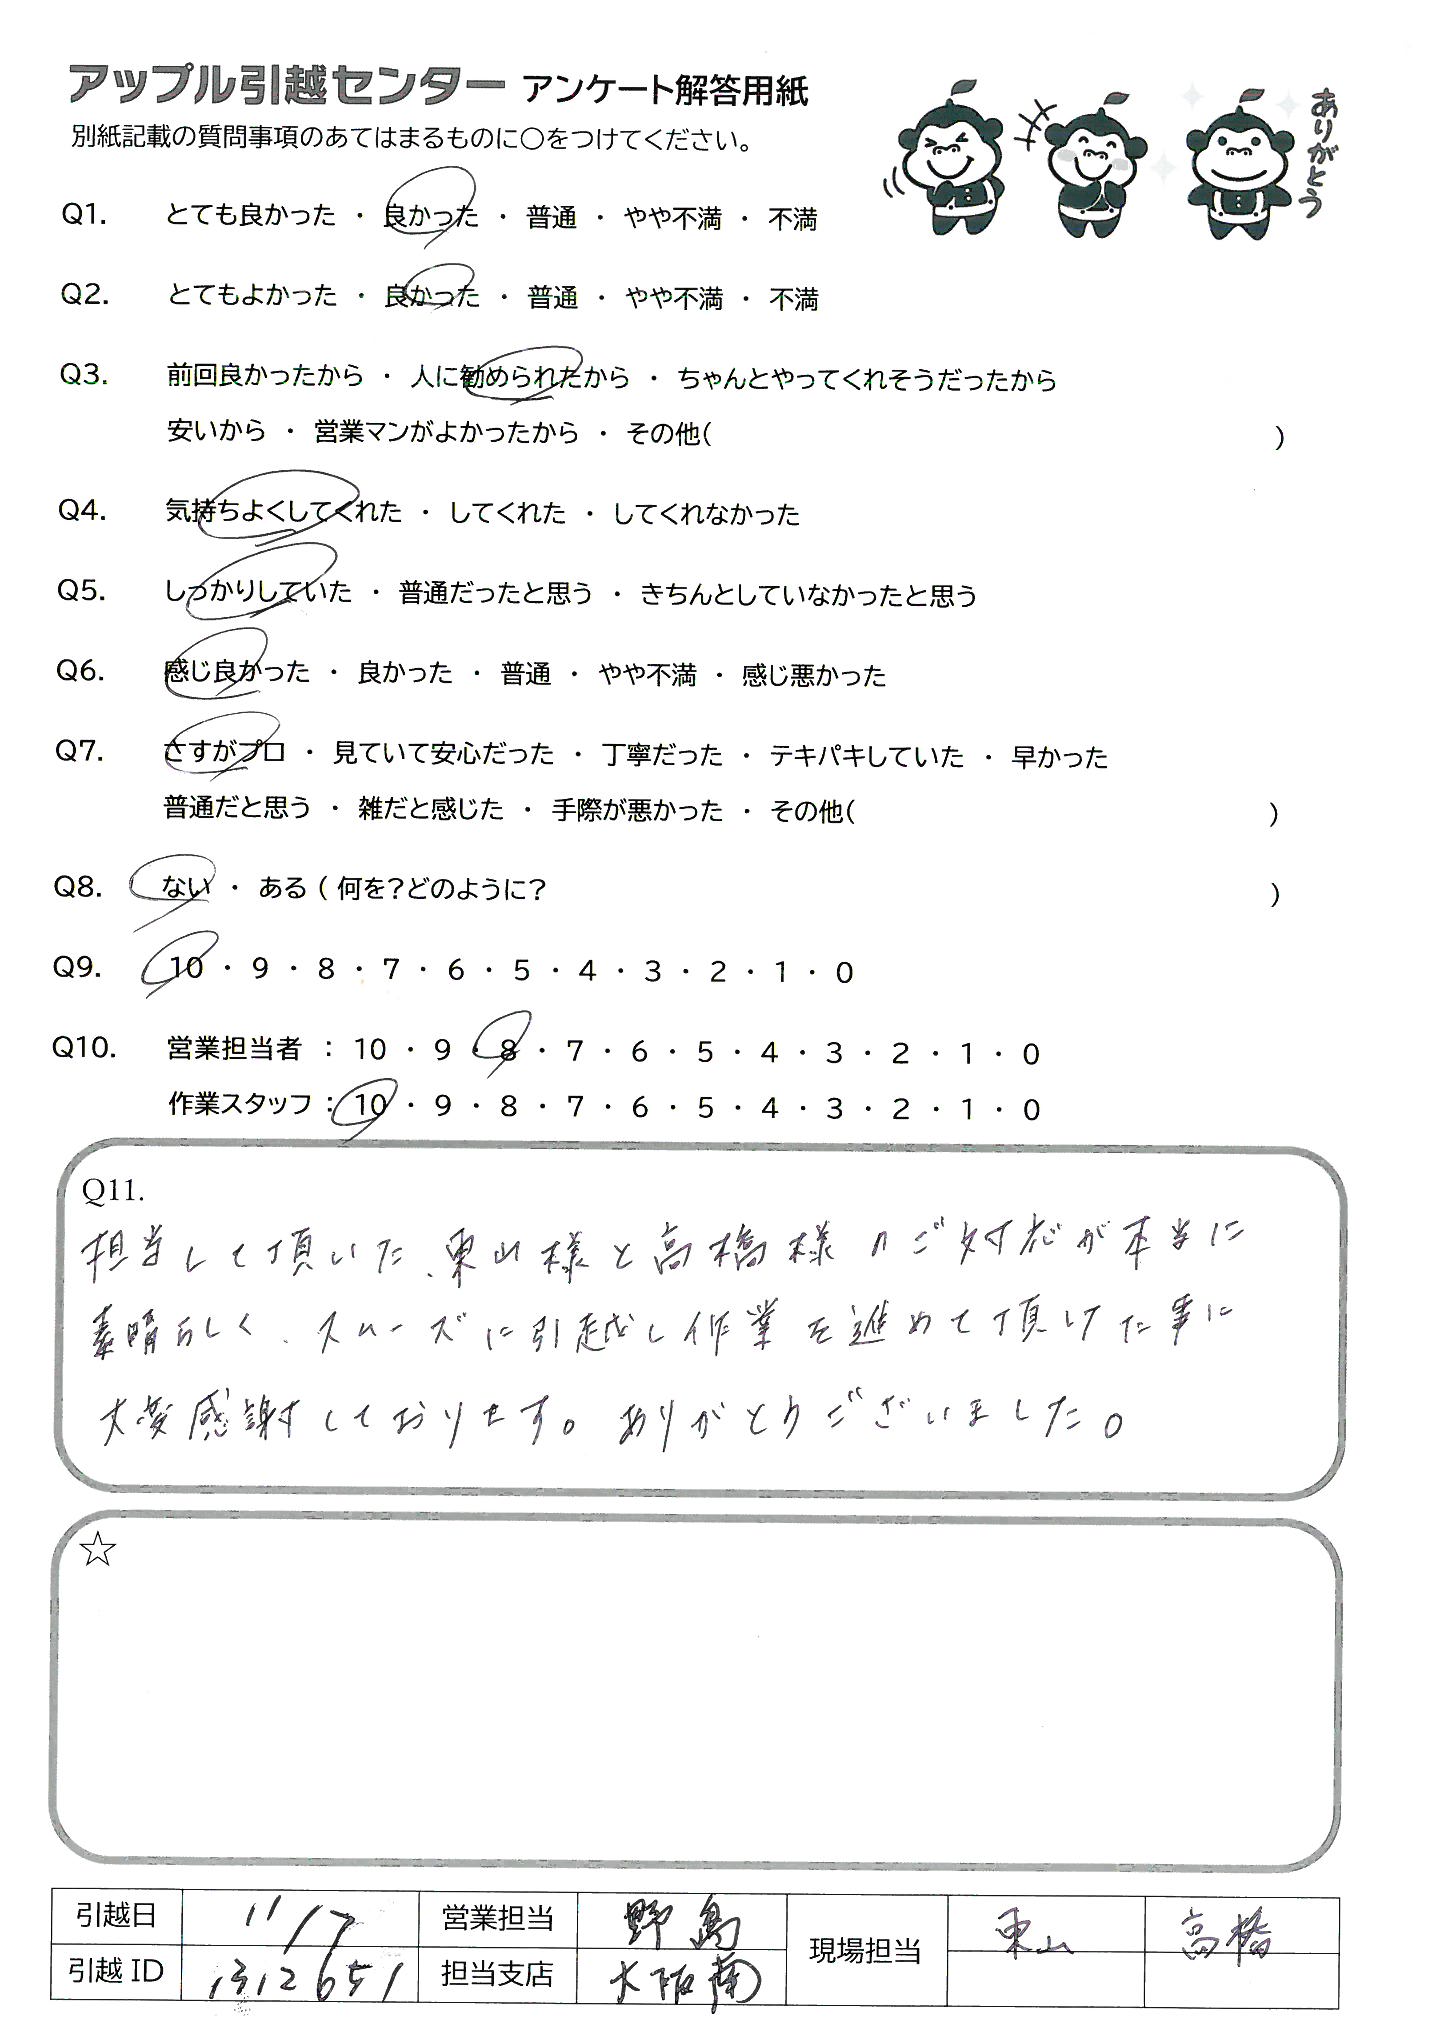 アップル引越センター アンケート解答用紙
別紙記載の質問事項のあてはまるものに○をつけてください。
ありがとう
Q1. とても良かった ・ 良かった ・ 普通 ・ やや不満 ・ 不満
Q2. とてもよかった ・ 良かった ・ 普通 ・ やや不満 ・ 不満
Q3. 前回良かったから ・ 人に勧められたから ・ ちゃんとやってくれそうだったから
安いから ・ 営業マンがよかったから ・ その他( )
Q4. 気持ちよくしてくれた ・ してくれた ・ してくれなかった
Q5. しっかりしていた ・ 普通だったと思う ・ きちんとしていなかったと思う
Q6. 感じ良かった ・ 良かった ・ 普通 ・ やや不満 ・ 感じ悪かった
Q7. さすがプロ ・ 見ていて安心だった ・ 丁寧だった ・ テキパキしていた ・ 早かった
普通だと思う ・ 雑だと感じた ・ 手際が悪かった ・ その他( )
Q8. ない ・ ある ( 何を?どのように? )
Q9. 10 ・ 9 ・ 8 ・ 7 ・ 6 ・ 5 ・ 4 ・ 3 ・ 2 ・ 1 ・ 0
Q10. 営業担当者 : 10 ・ 9 ・ 8 ・ 7 ・ 6 ・ 5 ・ 4 ・ 3 ・ 2 ・ 1 ・ 0
作業スタッフ : 10 ・ 9 ・ 8 ・ 7 ・ 6 ・ 5 ・ 4 ・ 3 ・ 2 ・ 1 ・ 0
Q11.
担当して頂いた、東山様と高橋様のご対応が本当に
素晴らしく、スムーズに引越し作業を進めて頂けた事に
大変感謝しております。ありがとうございました。
☆
引越日 11/17 営業担当 野島 現場担当 東山 高橋
引越ID 1312651 担当支店 大阪南